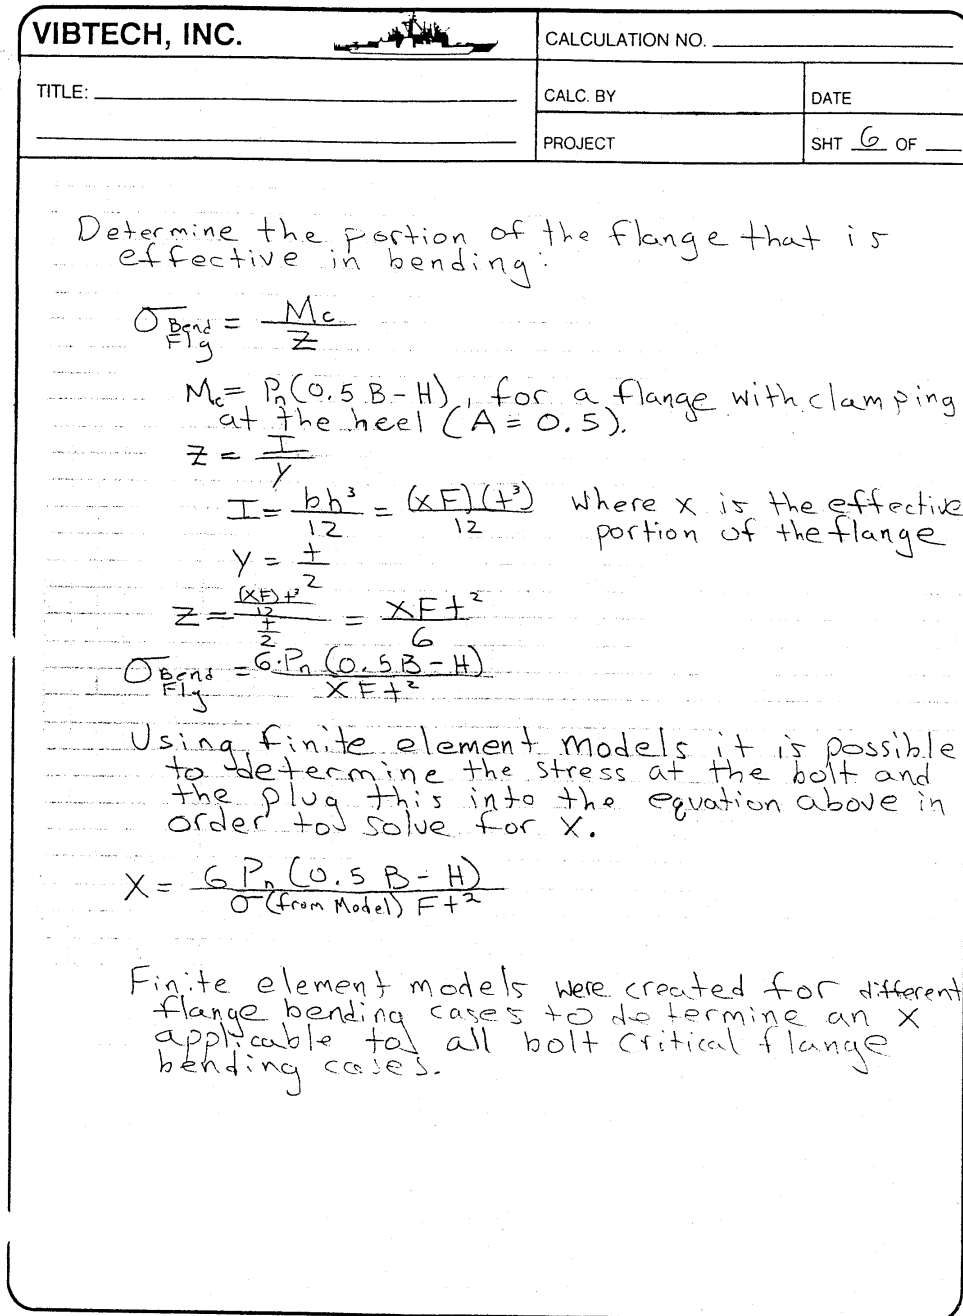 VIBTECH, INC.
CALCULATION NO.
TITLE:
CALC. BY
DATE
PROJECT
SHT 6 OF
Determine the portion of the flange that is
effective in bending:
σ Bend Flg = Mc / Z
Mc = Pn(0.5B-H), for a flange with clamping
at the heel (A = 0.5).
Z = I / Y
I = bh³ / 12 = (XF)(t³) / 12 where x is the effective
portion of the flange
Y = t / 2
Z = ((XF)t³ / 12) / (t / 2) = XFt² / 6
σ Bend Flg = 6·Pn(0.5B-H) / XFt²
Using finite element models it is possible
to determine the stress at the bolt and
the plug this into the equation above in
order to solve for X.
X = 6 Pn(0.5B-H) / σ(from Model) Ft²
Finite element models were created for different
flange bending cases to determine an X
applicable to all bolt critical flange
bending cases.